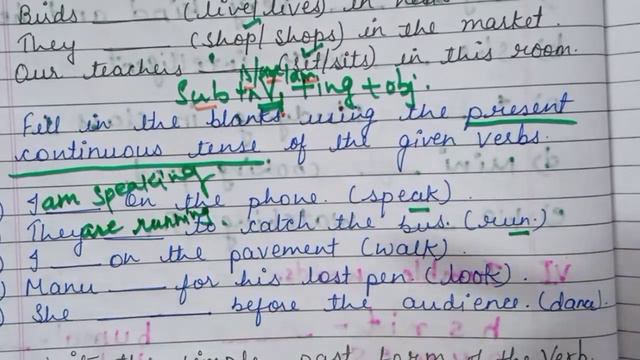 Birds ______ (live/lives) in
They ______ (shop/shops) in the market.
Our teachers ___ (sit/sits) in this room.
is/am/are
Sub + + V1 + ing + obj.
Fill in the blanks using the present
continuous tense of the given verbs.
I am speaking on the phone. (speak)
They are running to catch the bus. (run)
I ____ on the pavement (walk).
Manu ____ for his lost pen (look).
She ________ before the audience. (dance).
simple past form of the verb